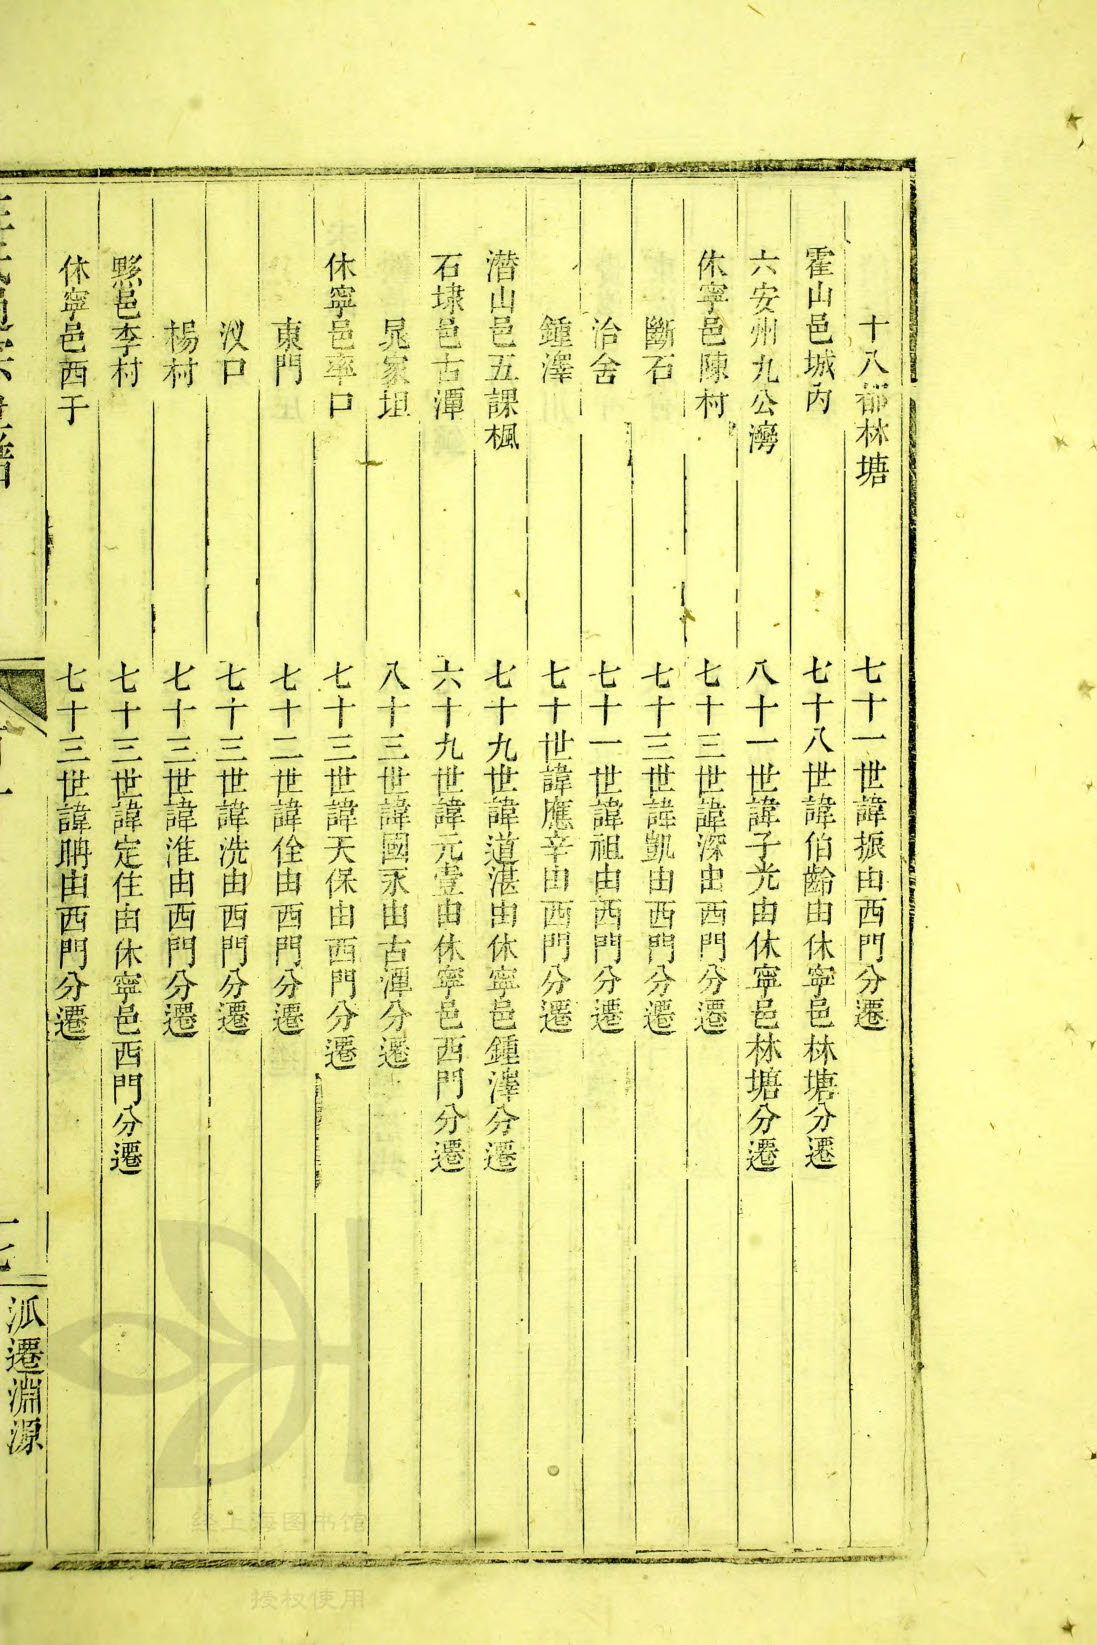 十八都林塘　七十一世諱振由西門分遷
霍山邑城內　七十八世諱伯齡由休寧邑林塘分遷
六安州九公灣　八十一世諱子光由休寧邑林塘分遷
休寧邑陳村　七十三世諱深由西門分遷
斷石　七十三世諱凱由西門分遷
治舍　七十一世諱祖由西門分遷
鍾澤　七十世諱應辛由西門分遷
潛山邑五課楓　七十九世諱道湛由休寧邑鍾澤分遷
石埭邑古潭　六十九世諱元壹由休寧邑西門分遷
晁家坦　八十三世諱國永由古潭分遷
休寧邑率口　七十三世諱天保由西門分遷
東門　七十二世諱佺由西門分遷
汊口　七十三世諱洗由西門分遷
楊村　七十三世諱淮由西門分遷
黟邑李村　七十三世諱定住由休寧邑西門分遷
休寧邑西干　七十三世諱聃由西門分遷
派遷淵源
经上海图书馆
授权使用